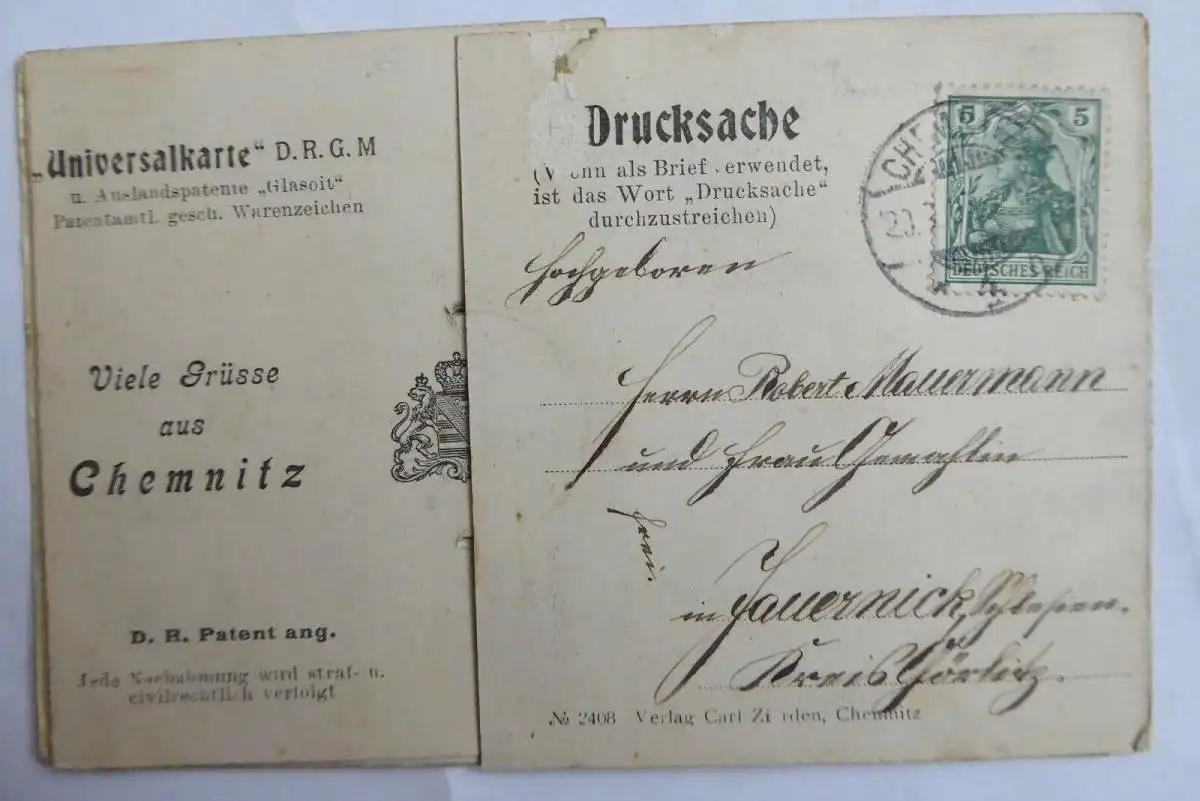 „Universalkarte“ D. R. G. M
u. Auslandspatente „Glasoit“
Patentamtl. gesch. Warenzeichen
Viele Grüsse
aus
Chemnitz
D. R. Patent ang.
Jede Nachahmung wird straf- u.
civilrechtlich verfolgt
Drucksache
(W nn als Brief verwendet,
ist das Wort „Drucksache“
durchzustreichen)
5 5
DEUTSCHES REICH
CHEM
20.
4.
Hochgeboren
Herrn Robert Mauermann
und Frau Gemahlin
frei.
in Jauernick, Schlesien.
Kreis Görlitz.
№ 2408 Verlag Carl Zi rden, Chemnitz